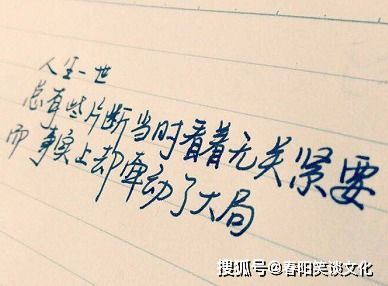 人生一世
总有些片断当时看着无关紧要
而事实上却牵动了大局
搜狐号@春阳笑谈文化